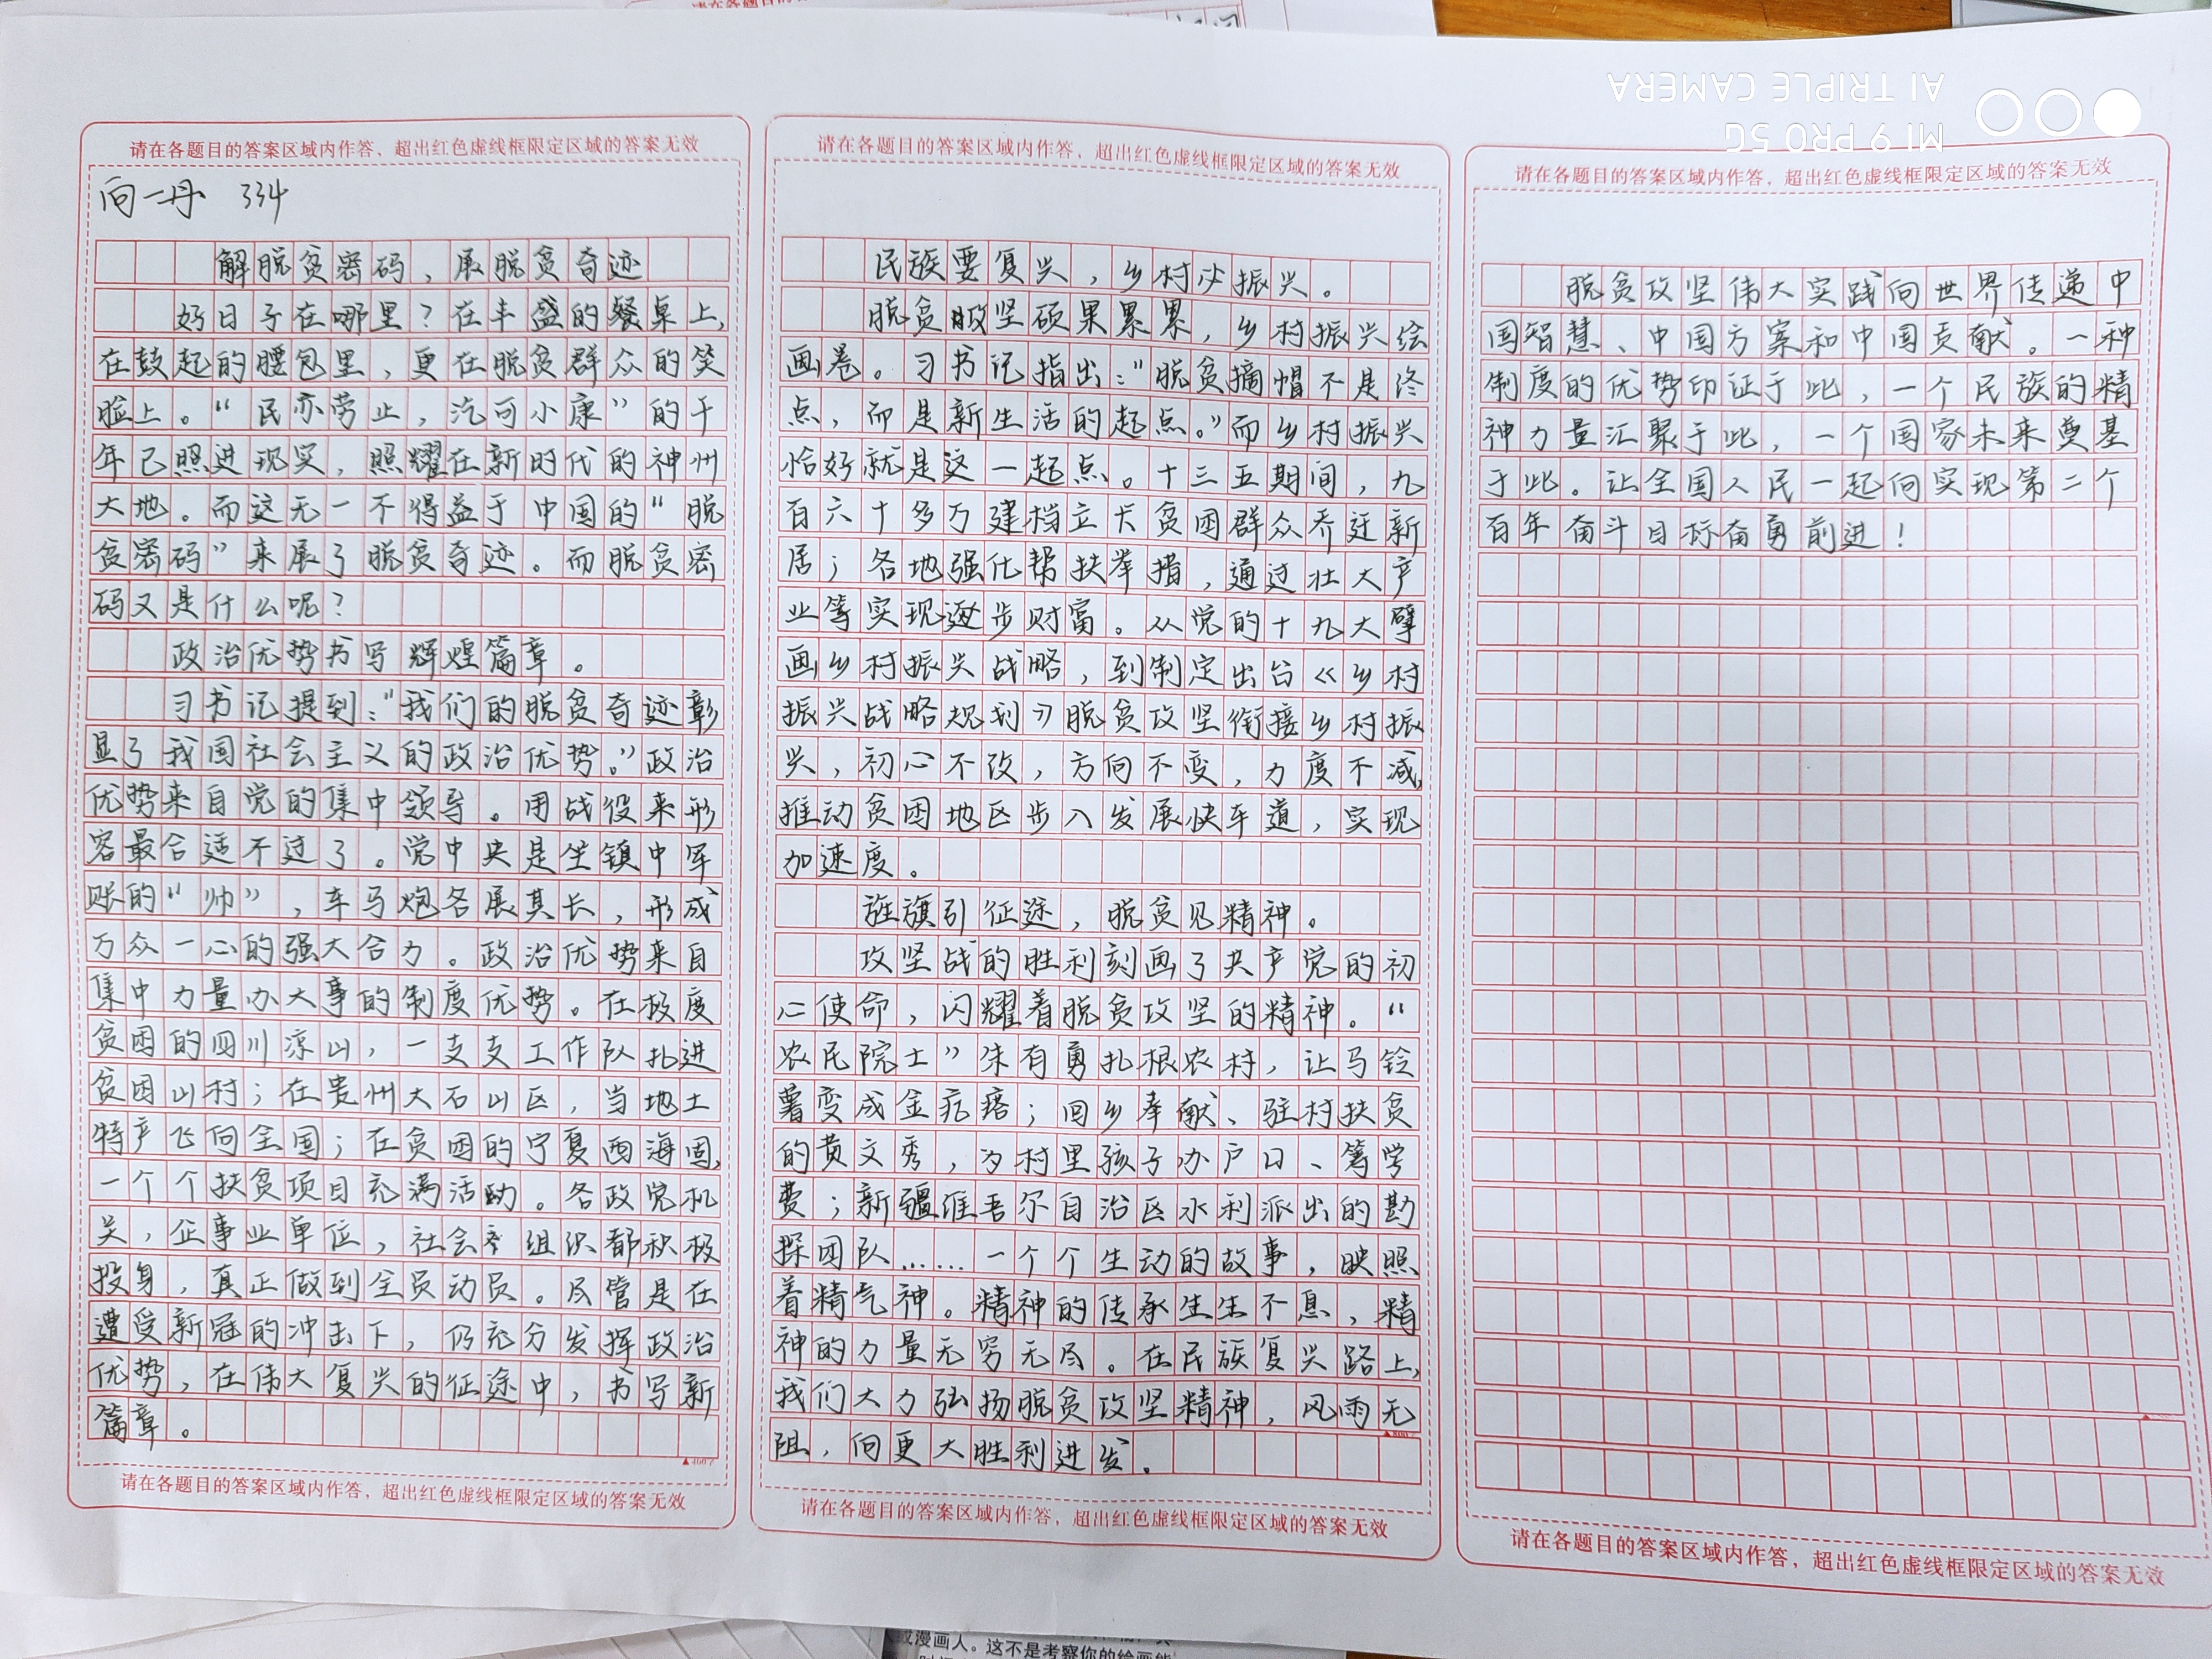 请在各题目的答案区域内作答，超出红色虚线框限定区域的答案无效
向一丹 334
解脱贫密码，展脱贫奇迹
好日子在哪里？在丰盛的餐桌上，
在鼓起的腰包里，更在脱贫群众的笑
脸上。“民亦劳止，汔可小康”的千
年已照进现实，照耀在新时代的神州
大地。而这无一不得益于中国的“脱
贫密码”来展了脱贫奇迹。而脱贫密
码又是什么呢？
政治优势书写辉煌篇章。
习书记提到：“我们的脱贫奇迹彰
显了我国社会主义的政治优势。”政治
优势来自党的集中领导。用战役来形
容最合适不过了。党中央是坐镇中军
账的“帅”，车马炮各展其长，形成
万众一心的强大合力。政治优势来自
集中力量办大事的制度优势。在极度
贫困的四川凉山，一支支工作队扎进
贫困山村；在贵州大石山区，当地土
特产飞向全国；在贫困的宁夏西海固，
一个个扶贫项目充满活动。各政党机
关，企事业单位，社会组织都积极
投身，真正做到全员动员。尽管是在
遭受新冠的冲击下，仍充分发挥政治
优势，在伟大复兴的征途中，书写新
篇章。
请在各题目的答案区域内作答，超出红色虚线框限定区域的答案无效
请在各题目的答案区域内作答，超出红色虚线框限定区域的答案无效
民族要复兴，乡村必振兴。
脱贫攻坚硕果累累，乡村振兴绘
画卷。习书记指出：“脱贫摘帽不是终
点，而是新生活的起点。”而乡村振兴
恰好就是这一起点。十三五期间，九
百六十多万建档立卡贫困群众乔迁新
居；各地强化帮扶举措，通过壮大产
业等实现逐步财富。从党的十九大擘
画乡村振兴战略，到制定出台《乡村
振兴战略规划》脱贫攻坚衔接乡村振
兴，初心不改，方向不变，力度不减，
推动贫困地区步入发展快车道，实现
加速度。
旌旗引征途，脱贫见精神。
攻坚战的胜利刻画了共产党的初
心使命，闪耀着脱贫攻坚的精神。“
农民院士”朱有勇扎根农村，让马铃
薯变成金疙瘩；回乡奉献、驻村扶贫
的黄文秀，为村里孩子办户口、筹学
费；新疆维吾尔自治区水利派出的勘
探团队……一个个生动的故事，映照
着精气神。精神的传承生生不息，精
神的力量无穷无尽。在民族复兴路上，
我们大力弘扬脱贫攻坚精神，风雨无
阻，向更大胜利进发。
请在各题目的答案区域内作答，超出红色虚线框限定区域的答案无效
请在各题目的答案区域内作答，超出红色虚线框限定区域的答案无效
脱贫攻坚伟大实践向世界传递中
国智慧、中国方案和中国贡献。一种
制度的优势印证于此，一个民族的精
神力量汇聚于此，一个国家未来奠基
于此。让全国人民一起向实现第二个
百年奋斗目标奋勇前进！
请在各题目的答案区域内作答，超出红色虚线框限定区域的答案无效
MI 9 PRO 5G
AI TRIPLE CAMERA
或漫画人。这不是考察你的绘画能